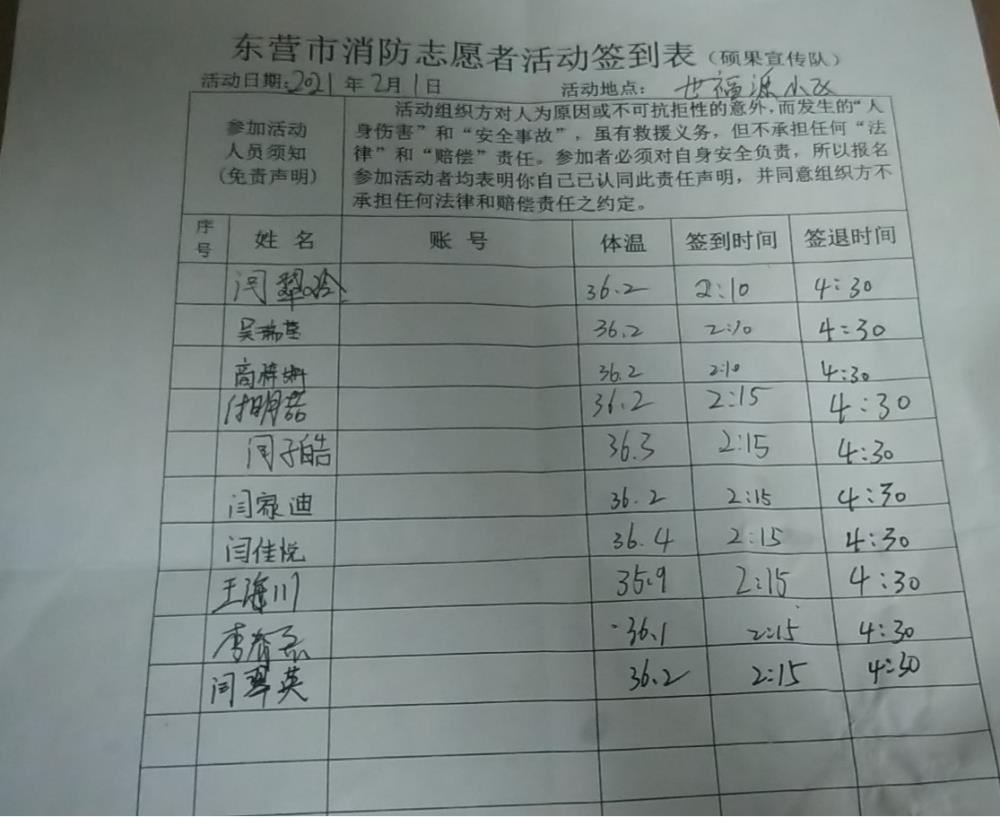 东营市消防志愿者活动签到表（硕果宣传队）
活动日期:2021年2月1日 活动地点: 世福源小区
参加活动
人员须知
(免责声明)
活动组织方对人为原因或不可抗拒性的意外,而发生的“人
身伤害”和“安全事故”，虽有救援义务，但不承担任何“法
律”和“赔偿”责任。参加者必须对自身安全负责，所以报名
参加活动者均表明你自己已认同此责任声明，并同意组织方不
承担任何法律和赔偿责任之约定。
序号 姓名 账号 体温 签到时间 签退时间
闫翠玲 36.2 2:10 4:30
吴瑞莹 36.2 2:10 4:30
高梓 36.2 2:10 4:30
付明磊 36.2 2:15 4:30
闫子皓 36.3 2:15 4:30
闫禄迪 36.2 2:15 4:30
闫佳悦 36.4 2:15 4:30
王海川 35.9 2:15 4:30
李 36.1 2:15 4:30
闫翠英 36.2 2:15 4:30